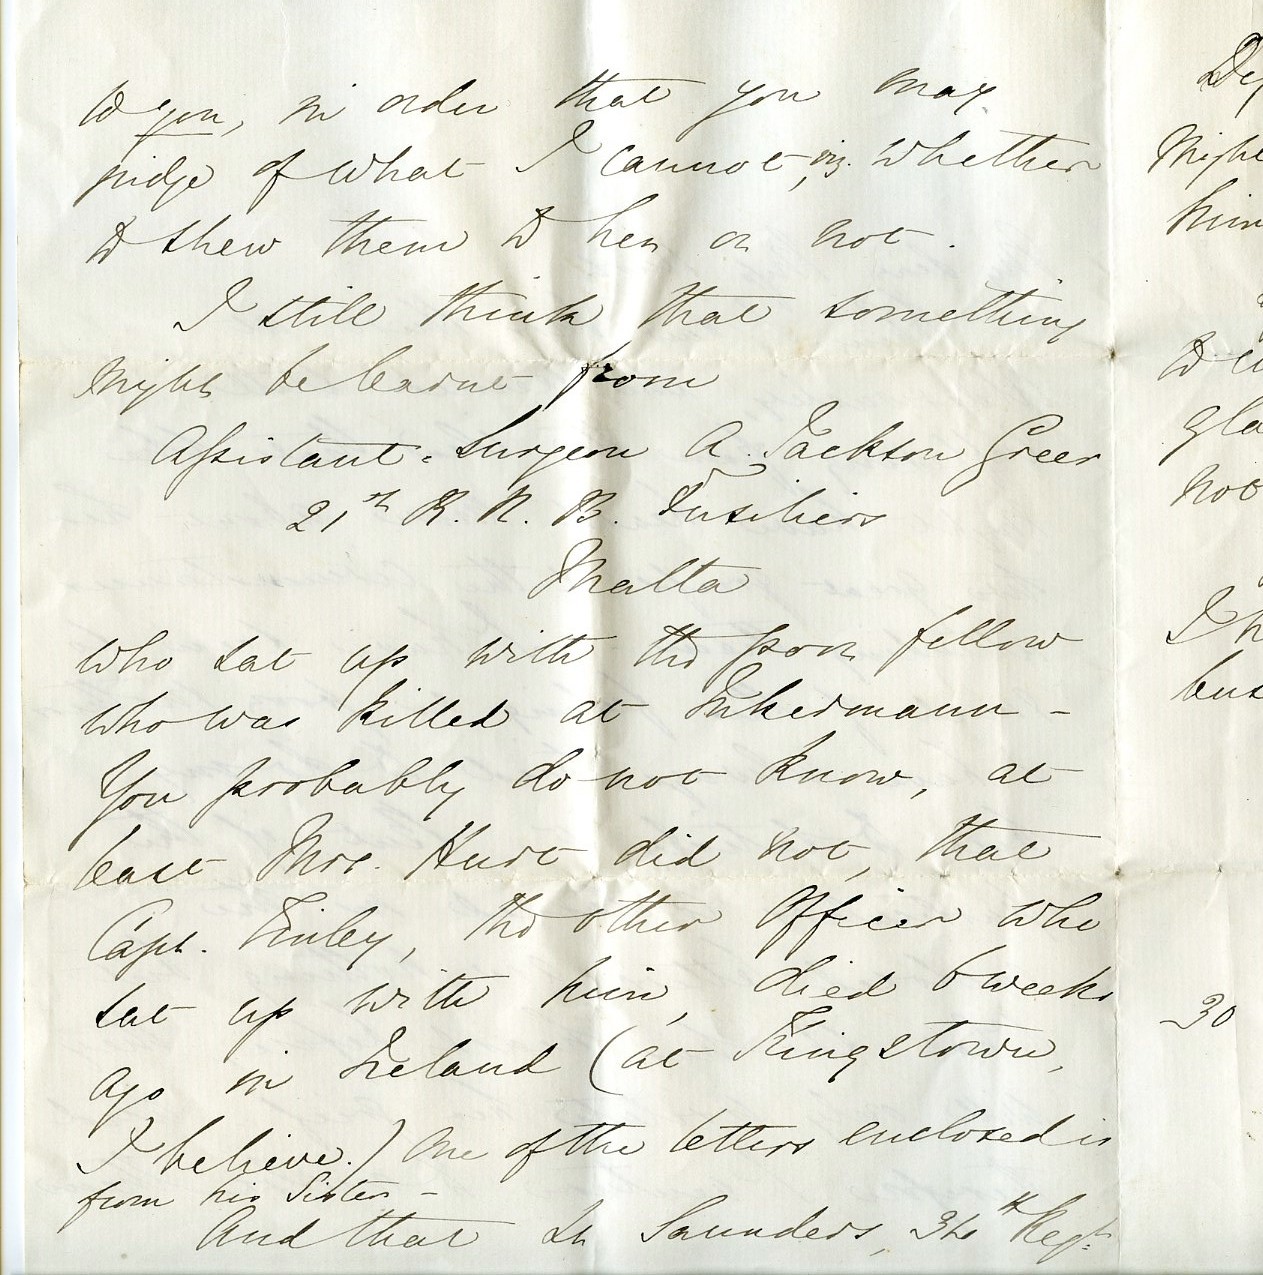 to you, in order that you may
judge of what I cannot, viz. whether
to shew them to her or not.
I still think that something
might be learnt from
Assistant-Surgeon A. Jackson Greer
21st R. N. B. Fusiliers
Malta
who sat up with the poor fellow
who was killed at Inkermann –
You probably do not know, at
least Mrs. Hurt did not, that
Capt. Finley, the other Officer who
sat up with him, died 6 weeks
ago in Ireland (at Kingstown,
I believe.) One of the letters enclosed is
from his Sister –
And that Lt. Saunders, 34th Regt.
Might
him
gla
not
I h
but
30